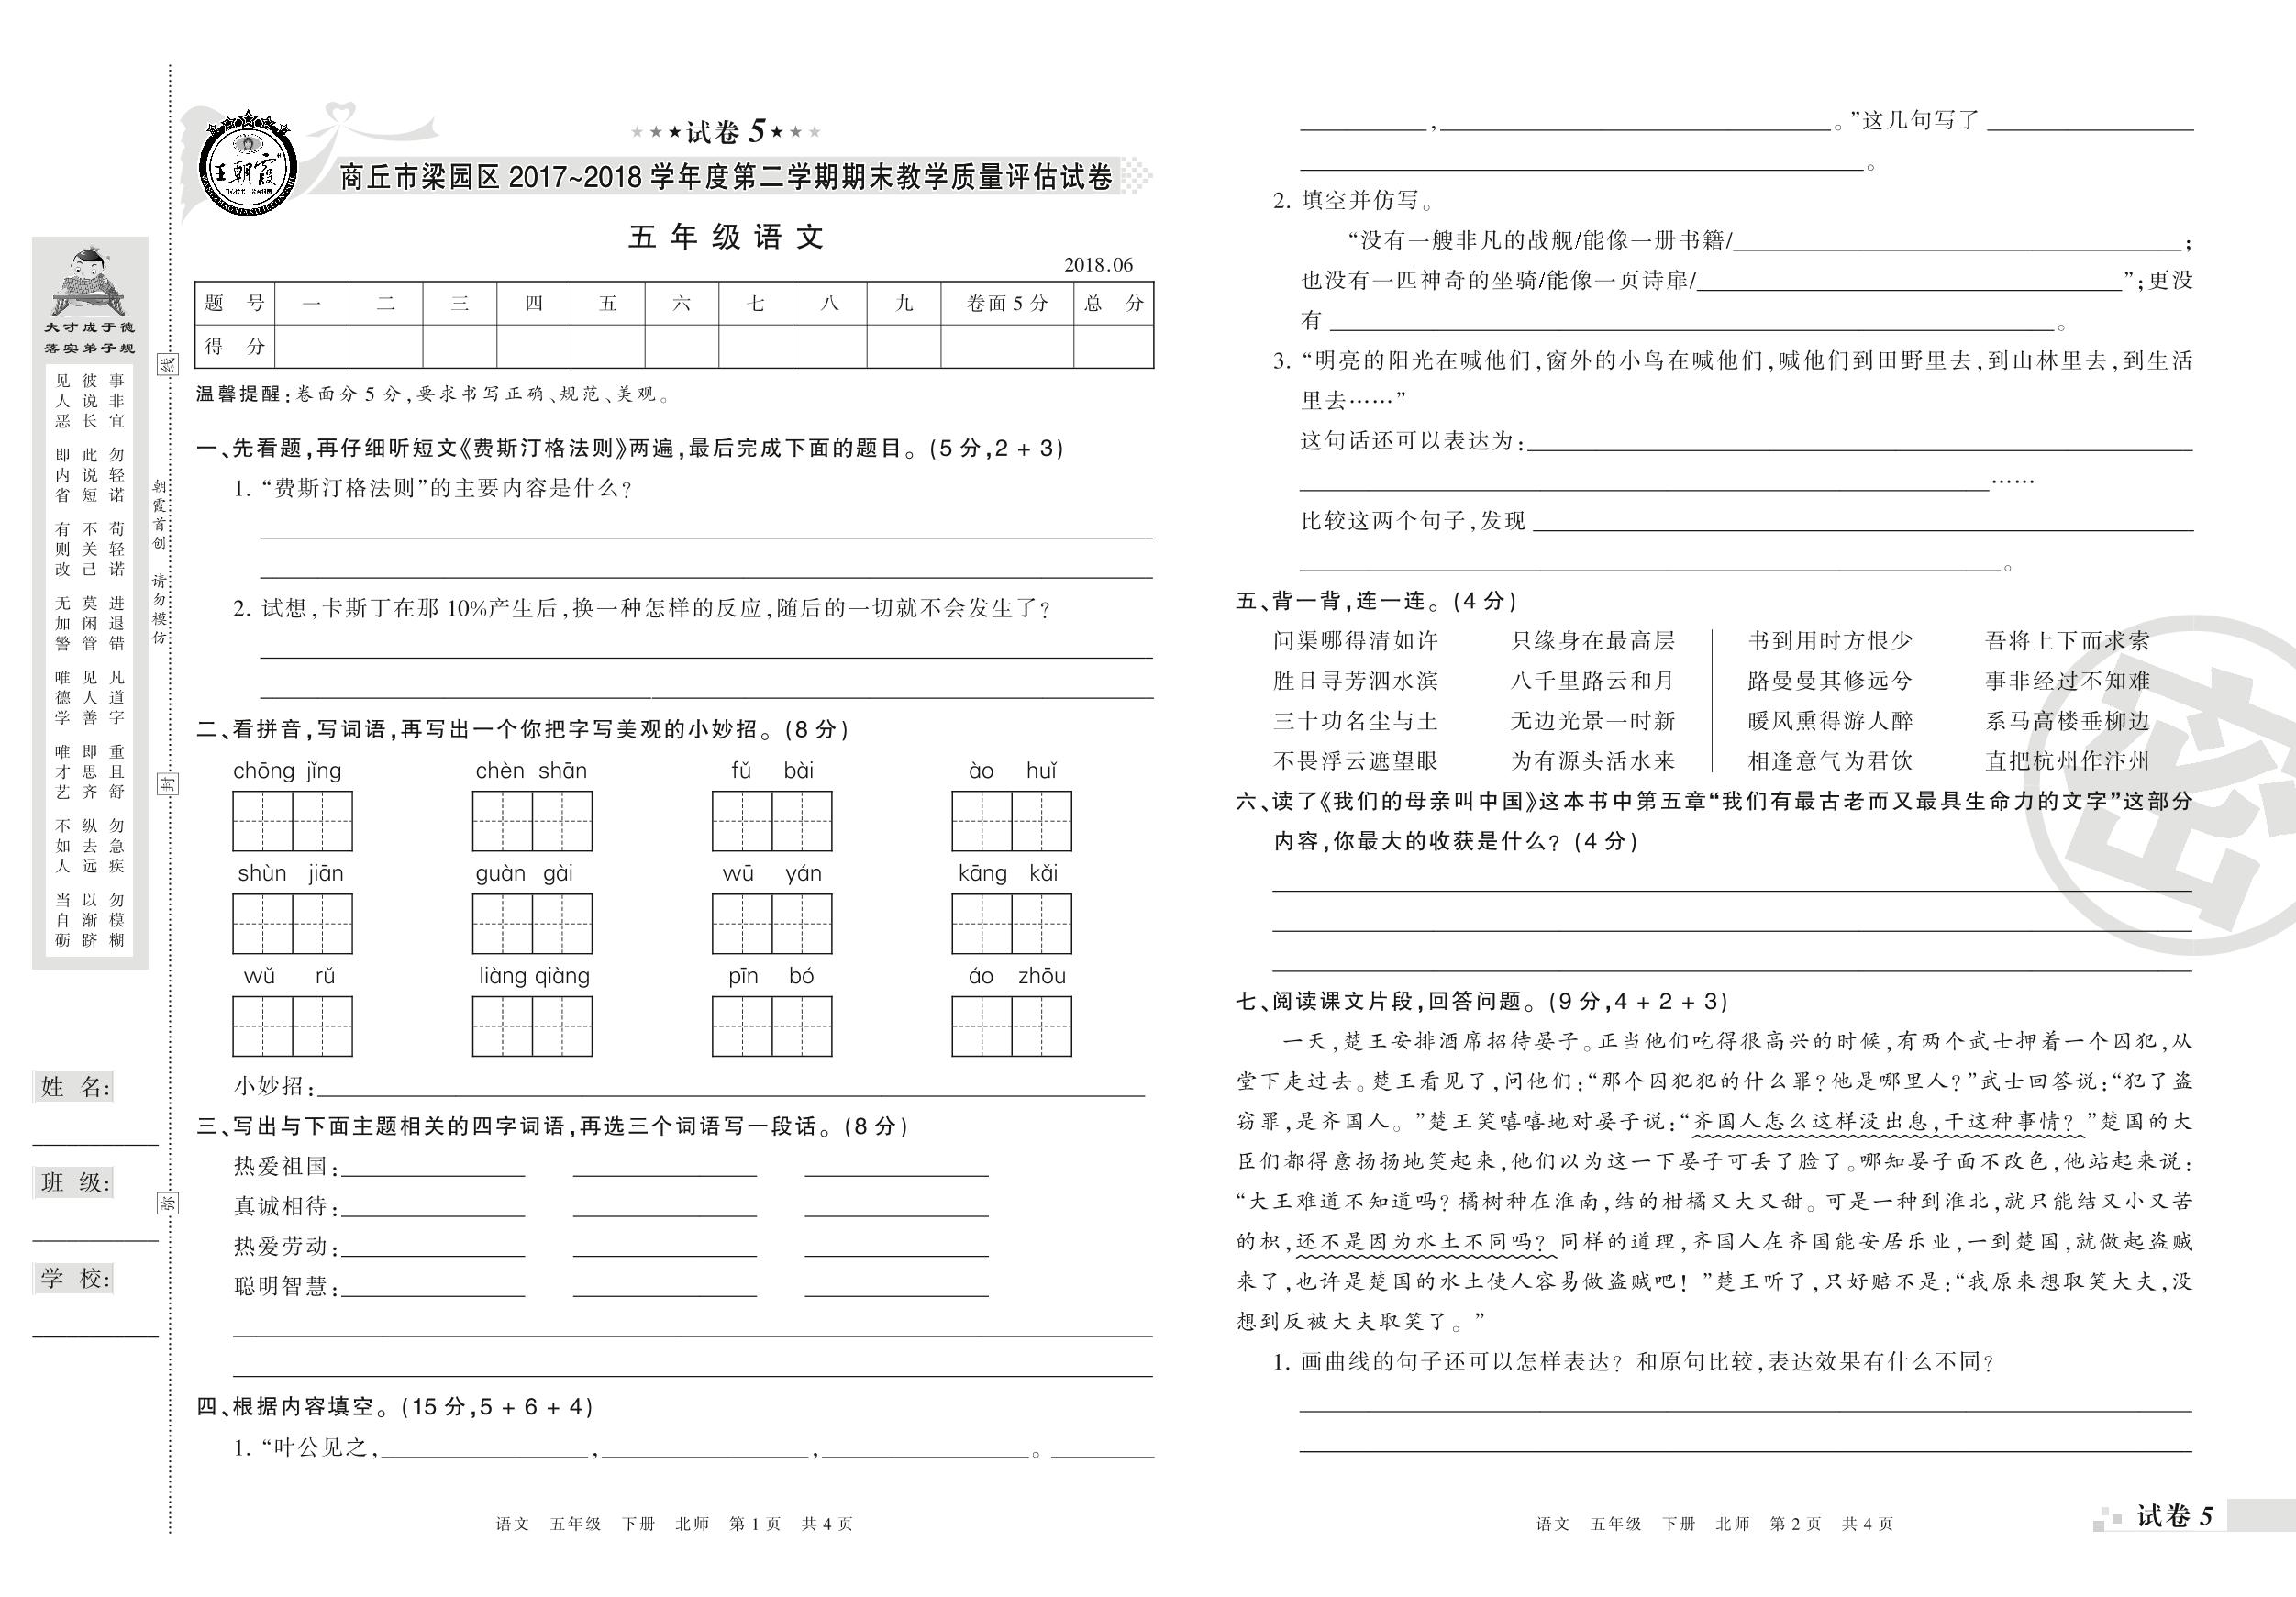 ★★★试卷 5★★★
王朝霞
商丘市梁园区 2017~2018 学年度第二学期期末教学质量评估试卷
五年级语文
2018.06
题 号 一 二 三 四 五 六 七 八 九 卷面 5 分 总 分
得 分
温馨提醒:卷面分 5 分,要求书写正确、规范、美观。
一、先看题,再仔细听短文《费斯汀格法则》两遍,最后完成下面的题目。(5 分,2 + 3)
1. “费斯汀格法则”的主要内容是什么?
2. 试想,卡斯丁在那 10%产生后,换一种怎样的反应,随后的一切就不会发生了?
二、看拼音,写词语,再写出一个你把字写美观的小妙招。(8 分)
chōng jǐng chèn shān fǔ bài ào huǐ
shùn jiān guàn gài wū yán kāng kǎi
wǔ rǔ liàng qiàng pīn bó áo zhōu
小妙招:
三、写出与下面主题相关的四字词语,再选三个词语写一段话。(8 分)
热爱祖国:
真诚相待:
热爱劳动:
聪明智慧:
四、根据内容填空。(15 分,5 + 6 + 4)
1. “叶公见之, , , 。
语文 五年级 下册 北师 第 1 页 共 4 页
大才成于德
落实弟子规
事非宜 勿轻诺 苟轻诺 进退错 凡道字 重且舒 勿急疾 勿模糊
彼说长 此说短 不关己 莫闲管 见人善 即思齐 纵去远 以渐跻
见人恶 即内省 有则改 无加警 唯德学 唯才艺 不如人 当自砺
朝霞首创 请勿模仿
线
封
弥
姓 名:
班 级:
学 校:
, 。”这几句写了
。
2. 填空并仿写。
“没有一艘非凡的战舰/能像一册书籍/ ;
也没有一匹神奇的坐骑/能像一页诗扉/ ”;更没
有 。
3. “明亮的阳光在喊他们,窗外的小鸟在喊他们,喊他们到田野里去,到山林里去,到生活
里去……”
这句话还可以表达为:
……
比较这两个句子,发现
。
五、背一背,连一连。(4 分)
问渠哪得清如许 只缘身在最高层 书到用时方恨少 吾将上下而求索
胜日寻芳泗水滨 八千里路云和月 路曼曼其修远兮 事非经过不知难
三十功名尘与土 无边光景一时新 暖风熏得游人醉 系马高楼垂柳边
不畏浮云遮望眼 为有源头活水来 相逢意气为君饮 直把杭州作汴州
六、读了《我们的母亲叫中国》这本书中第五章“我们有最古老而又最具生命力的文字”这部分
内容,你最大的收获是什么? (4 分)
密
七、阅读课文片段,回答问题。(9 分,4 + 2 + 3)
一天,楚王安排酒席招待晏子。正当他们吃得很高兴的时候,有两个武士押着一个囚犯,从
堂下走过去。楚王看见了,问他们:“那个囚犯犯的什么罪?他是哪里人?”武士回答说:“犯了盗
窃罪,是齐国人。”楚王笑嘻嘻地对晏子说:“齐国人怎么这样没出息,干这种事情?”楚国的大
臣们都得意扬扬地笑起来,他们以为这一下晏子可丢了脸了。哪知晏子面不改色,他站起来说:
“大王难道不知道吗? 橘树种在淮南,结的柑橘又大又甜。可是一种到淮北,就只能结又小又苦
的枳,还不是因为水土不同吗? 同样的道理,齐国人在齐国能安居乐业,一到楚国,就做起盗贼
来了,也许是楚国的水土使人容易做盗贼吧! ”楚王听了,只好赔不是:“我原来想取笑大夫,没
想到反被大夫取笑了。”
1. 画曲线的句子还可以怎样表达? 和原句比较,表达效果有什么不同?
语文 五年级 下册 北师 第 2 页 共 4 页
试卷 5